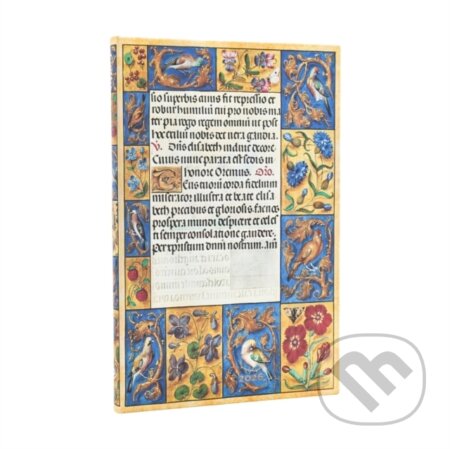 sio superbis auus fit repressio et
robur humiliū cui pro nobis ma
ter pia rego regem omniū ut post
hec exiliū nobis det vera gaudia.
V. Dns elisabeth induit decore
Cuius nunc parata est sedis in
honore Oremus. Oro.
Tuorū corda fidelium
miserator illustra et beate elisa
beth precibus et gloriosis fac nos
prospera mundi despicere et celes
ti semper consolatione gaudere.
Per xpristum dnm nostrum. am
2026